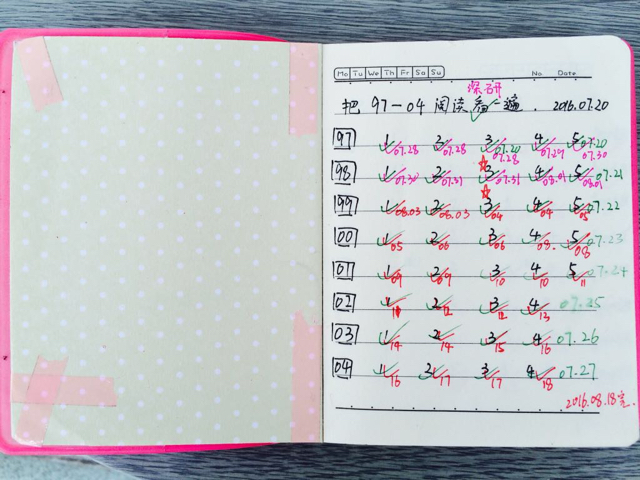 Mo Tu We Th Fr Sa Su No. Date
深研
把 97-04 阅读看一遍. 2016.07.20
97 1 2 3 4 5 07.20
07.28 07.28 07.28 07.29 07.30
98 1 2 3 4 5 07.21
07.30 07.31 07.31 08.01 08.01
99 1 2 3 4 5 07.22
08.03 08.03 04 04 05
00 1 2 3 4 5 07.23
05 06 06 08. 08
01 1 2 3 4 5 07.24
09 09 10 10 11
02 1 2 3 4 07.25
11 12 12 13
03 1 2 3 4 07.26
14 14 15 16
04 1 2 3 4 07.27
16 17 17 18
2016.08.18完.